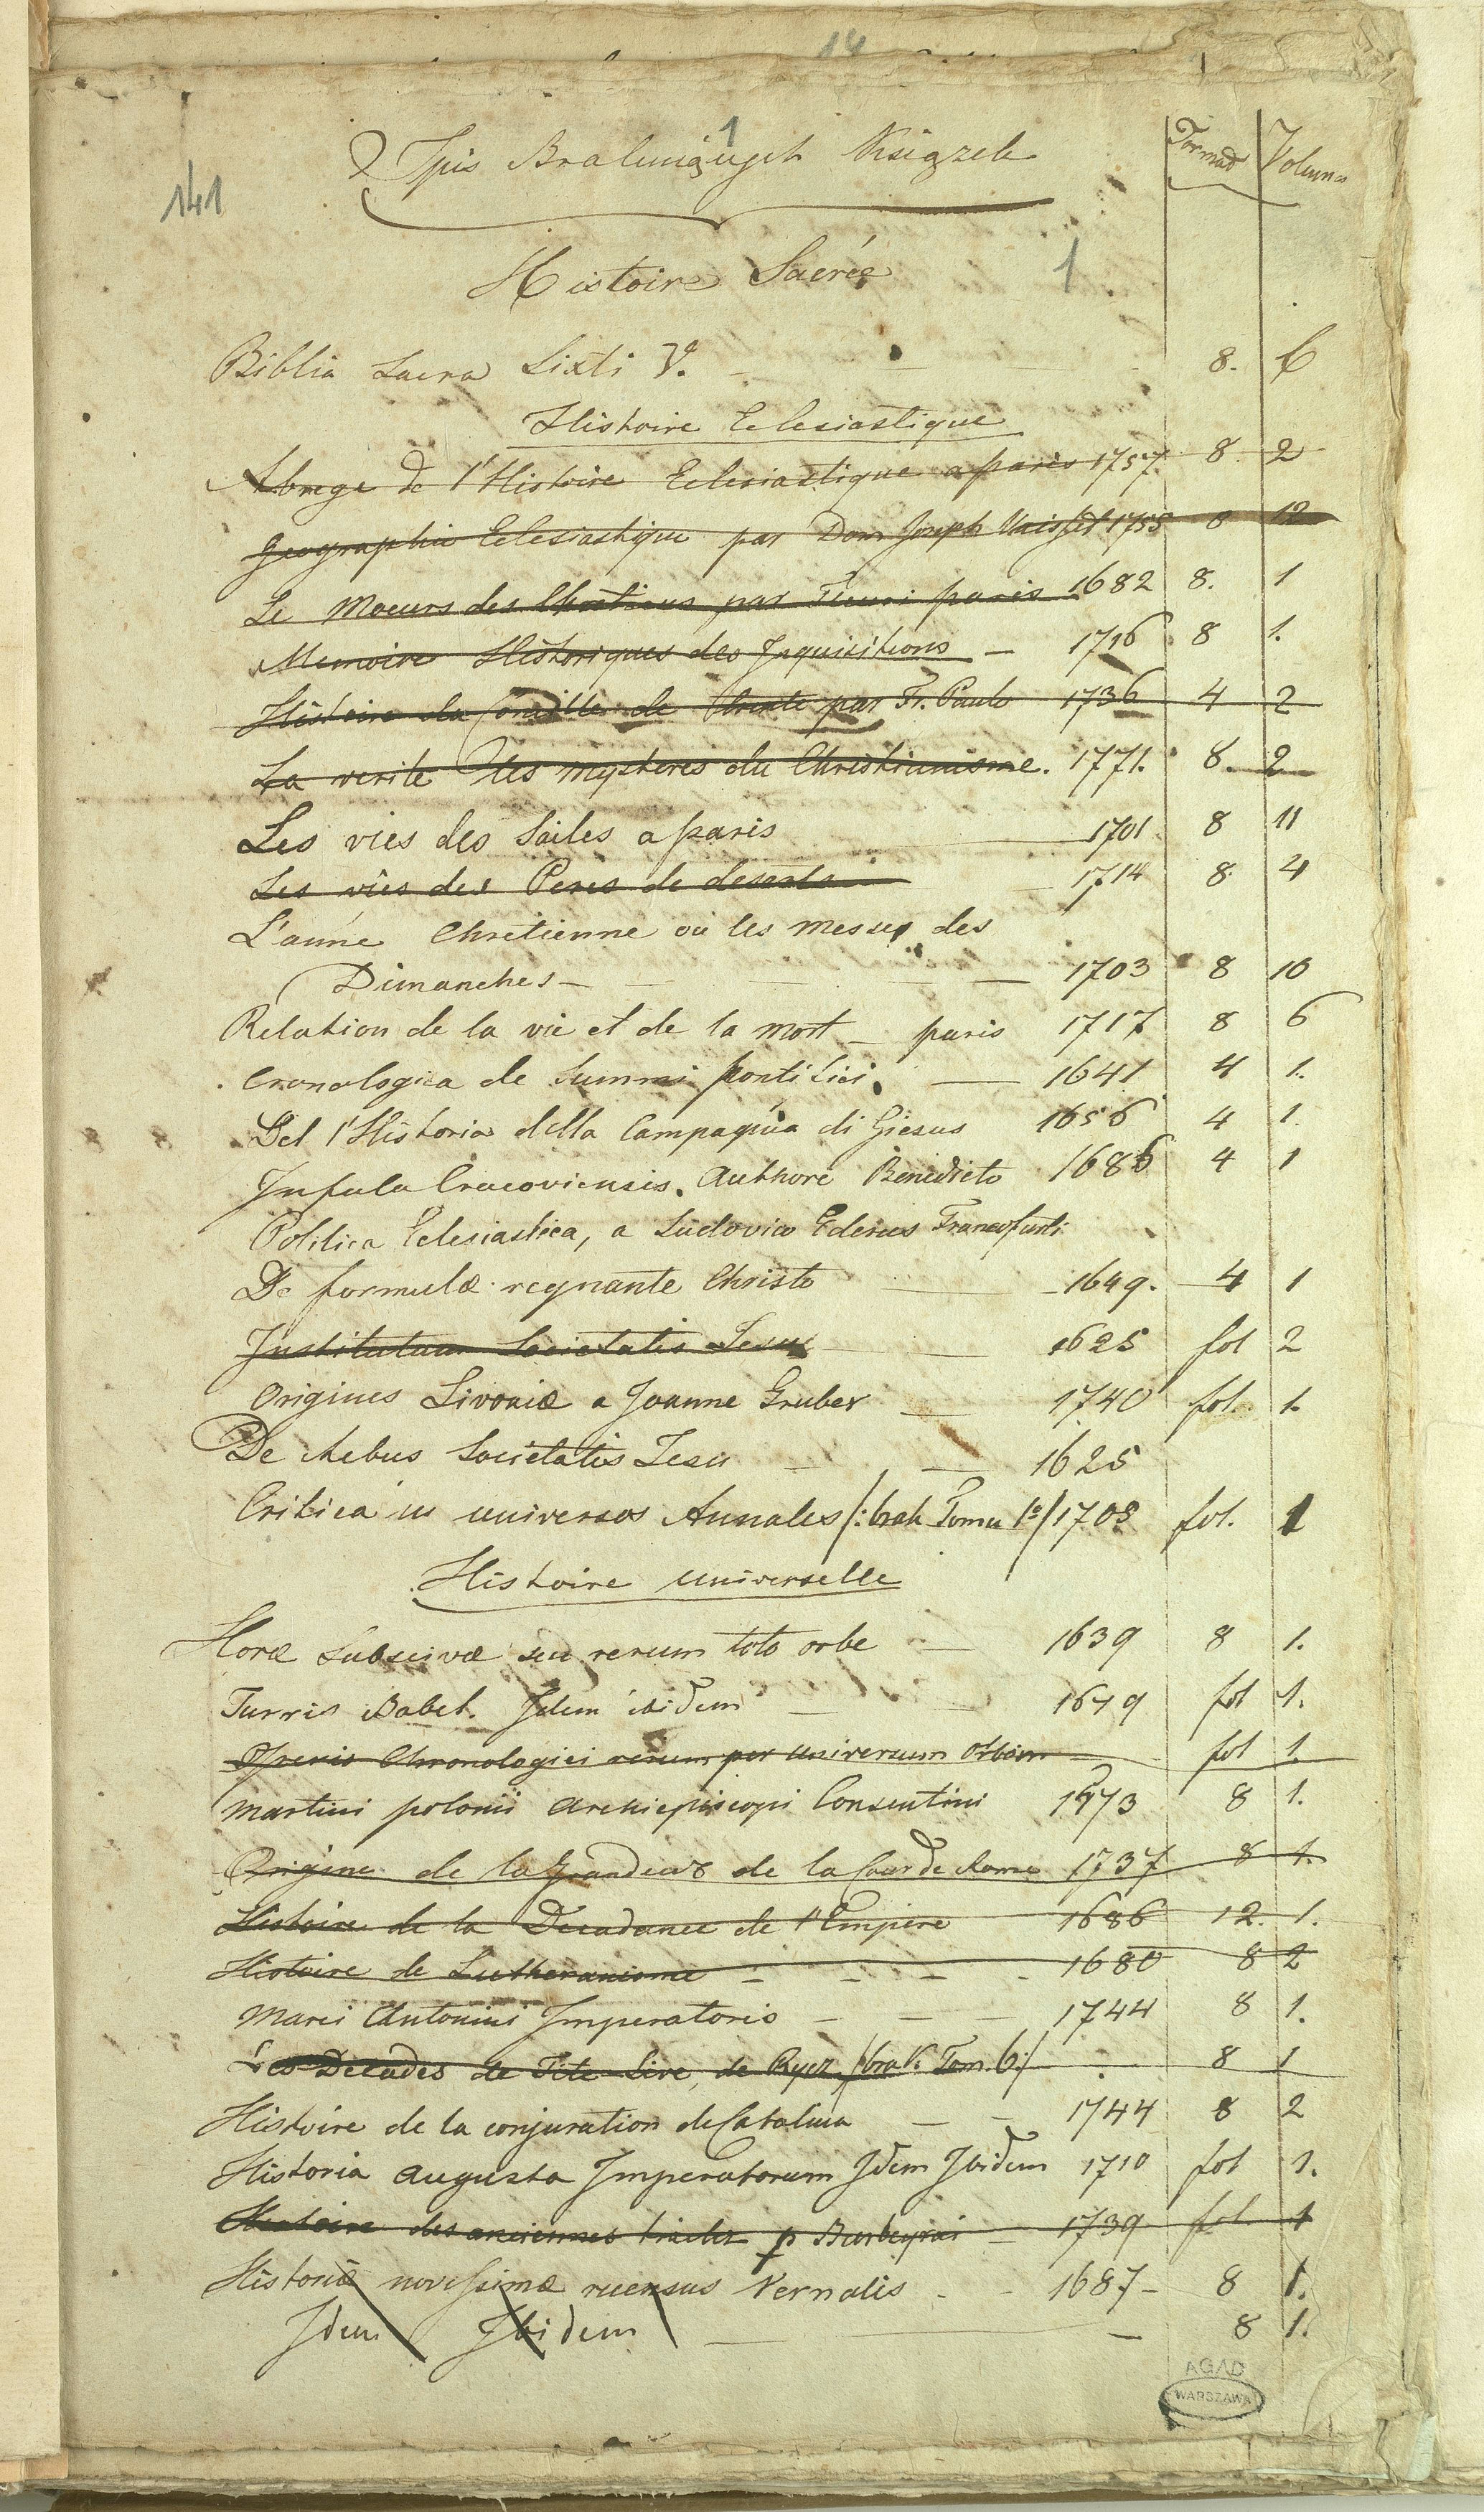 14
141
1
Spis Brakuiących Książek
Format Volum
Histoire Sacrée
1
Biblia Sacra Sixti V. 8. 6
Histoire Eclesiastique
Abrege de l'Histoire Eclesiastique a paris 1757. 8. 2
Geographie Eclesiastique par Dom Joseph Vaissete 1755 8 12
Le Moeurs des Chretiens par Fleuri paris 1682 8. 1
Memoire Historiques des Inquisitions — 1716 8 1.
Histoire du Concille de Trente par Fr. Paulo 1736 4 2
La verite des mysteres du Christianisme. 1771. 8. 2
Les vies des Saites a paris 1701 8 11
Les vies des Peres de deserts 1714 8 4
L'anné Chretienne ou les Messes des
Dimanches — 1703 8 10
Relation de la vie et de la mort — paris 1717 8 6
Cronologica de Summi pontifici. — 1641 4 1.
Del l'Historia della Campagnia di Giesus 1656 4 1.
Infula Cracoviensis. Authore Benedicto 1686 4 1
Politica Eclesiastica, a Ludovico Ederus Francofurti
De formulæ regnante Christo — 1649. 4 1
Institutum Societatis Jesu 1625 fol 2
Origines Livoniæ a Joanne Gruber — 1740 fol. 1.
De Rebus Societatis Jesu — 1625
Critica in universos Annales /: brak Tomu 1o/ 1705 fol. 1
Histoire universelle
Horæ Subscivæ seu rerum toto orbe — 1639 8 1.
Turris Babel. Idem ibidem — 1679 fol 1.
Operis Chronologici rerum per universum Orbem — fol 1.
Martini polonii Archiepiscopi Consentini 1573 8 1.
Origine de la Grandeur de la Cour de Rome 1737 8 1.
Histoire de la Decadance de l'Empire 1686 12. 1.
Histoire de Lutheranisme - - - 1680 8 2
Marci Antonini Imperatoris — — — 1744 8 1.
Les Decades de Tite-Live, de Ryer /:brak Tom. 6:/ 8 1
Histoire de la conjuration de Catalina — - 1744 8 2
Historia Augusta Imperatorum Idem Ibidem 1710 fol 1.
Histoire des anciennes traites p Barbeyrai — 1739 fol. 1
Historiæ novissimæ recensus Vernalis - - 1687 - 8 1.
Idem Ibidem — — 8 1.
AGAD
WARSZAWA